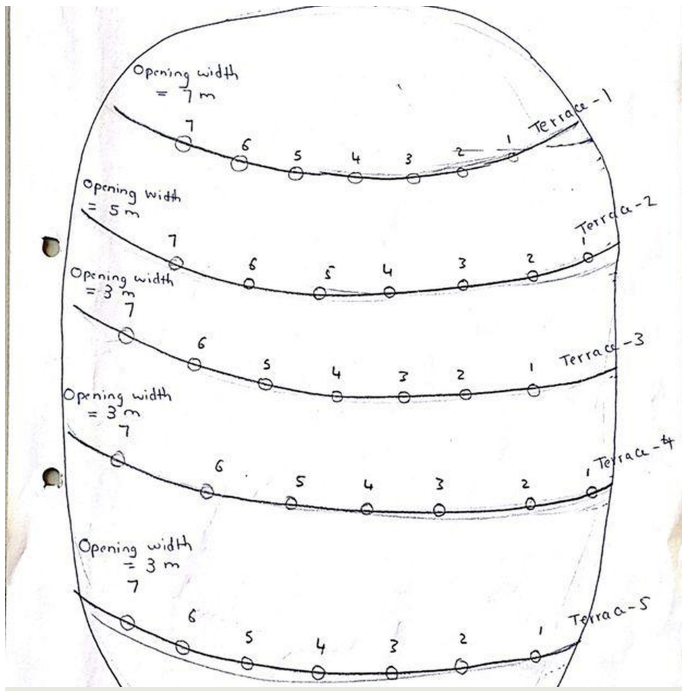 Opening width
= 7 m
7 6 5 4 3 2 1
Terrace-1
Opening width
= 5 m
7 6 5 4 3 2 1
Terrace-2
Opening width
= 3 m
7 6 5 4 3 2 1
Terrace-3
Opening width
= 3 m
7 6 5 4 3 2 1
Terrace-4
Opening width
= 3 m
7 6 5 4 3 2 1
Terrace-5